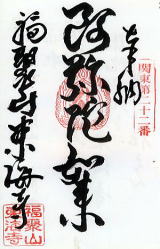 奉納
関東第二十二番
阿弥陀如来
福聚山東海寺
福聚山
東海寺